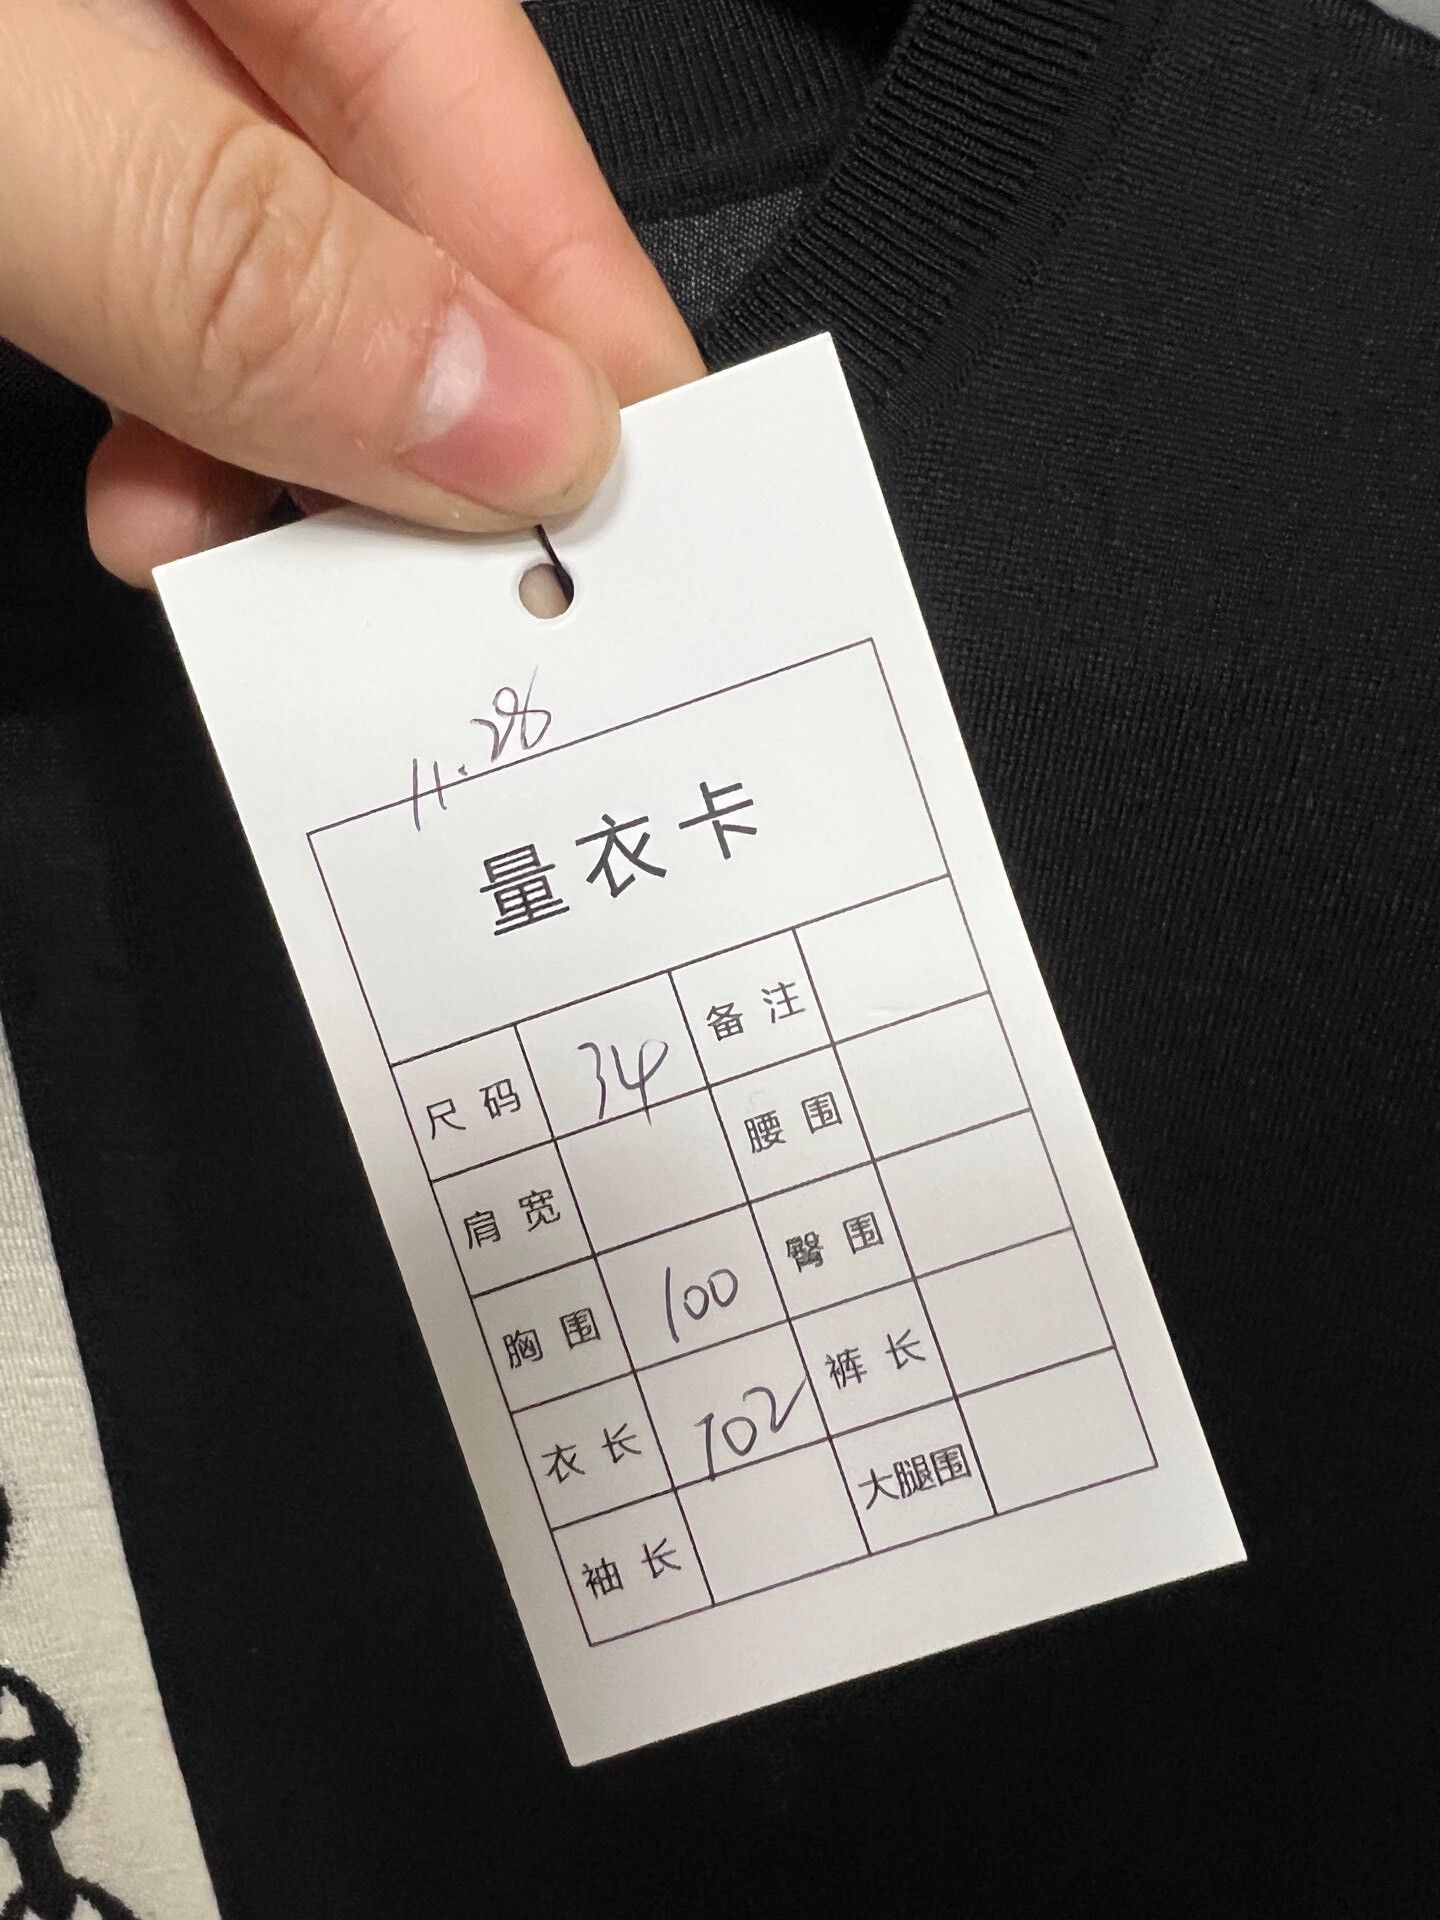 11.28
量衣卡
尺码 34 备注
肩宽 腰围
胸围 100 臀围
衣长 102 裤长
袖长 大腿围